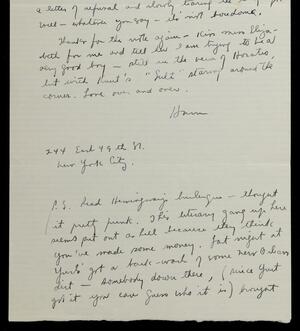 a letter of refusal and slowly tearing the
well — whatever you say — it's not handsome.
Thanks for the note again — Kiss miss Eliza-
beth for me and tell her I am trying to be a
very good boy — still in the vein of Horatio,
but with "Guilt" staring around the
corner. Love over and over.
244 East 49th St.
New York City.
P.S. Read Hemingway's burlesque — thought
it pretty punk. This literary gang up here
seems put out as hell because they think
you've made some money. Last night at
got a back-wash of some New Orleans
dirt — somebody down there, (since
got it you can guess who it is) brought